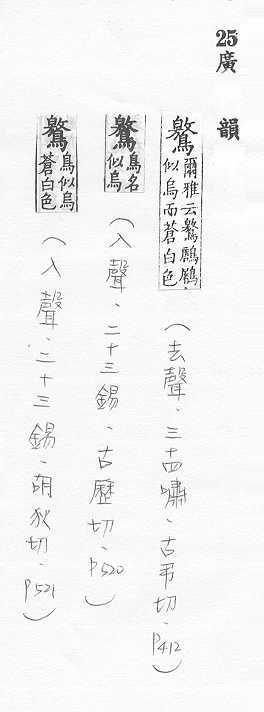 25 廣韻
鷔 爾雅云鷔鶶鶴
似烏而蒼白色
(去聲、三十四嘯、古弔切、P412)
鷔 鳥名
似烏
(入聲、二十三錫、古歷切、P520)
鷔 鳥似烏
蒼白色
(入聲、二十三錫、胡狄切、P521)